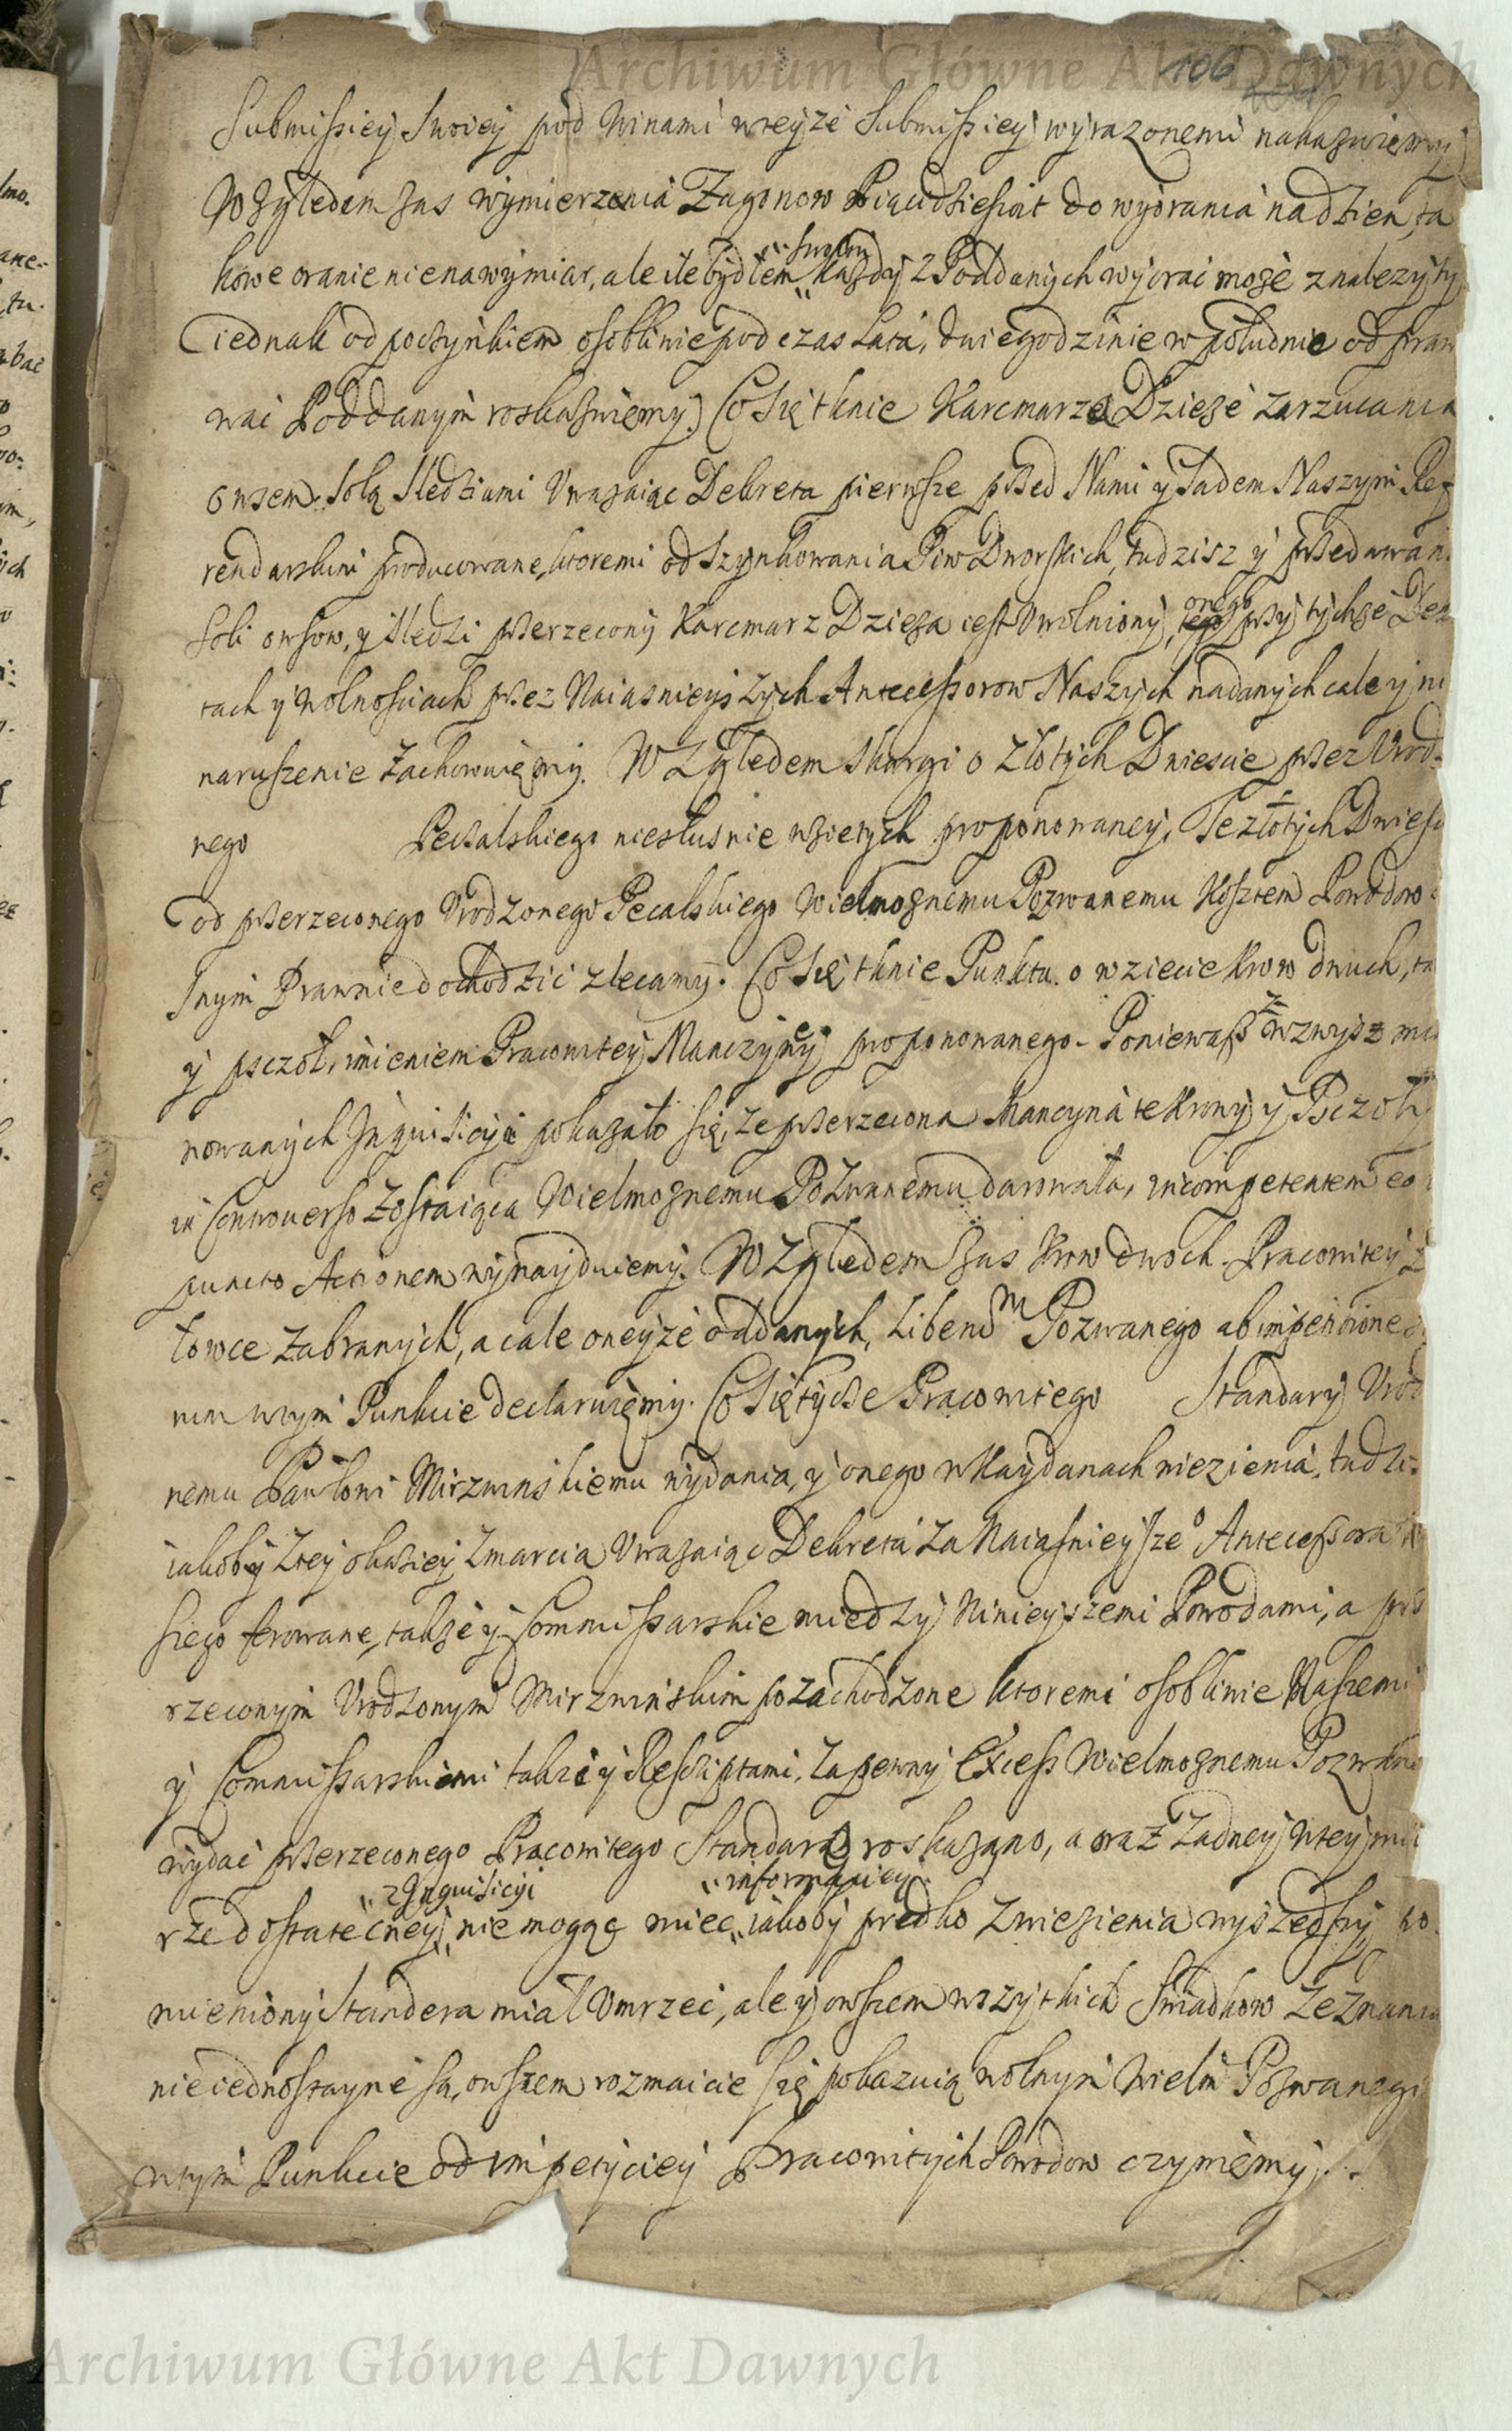 Archiwum Główne Akt Dawnych
106
Submissiey Swoiey pod Winami wteyże Submissiey wyrazonemi nakazuiemy
Względem zas wymierzenia Zagonow Piącdziesiąt do wyorania na dzien, ta
kowe oranie nie na wymiar, ale ile bydłem swoim każdy z Poddanych wyorac może z należyty
iednak odpoczynkiem osobliwie podczas Lata, dwie godzinie w południe odpraw
wac Poddanym roskazuiemy. Co się tknie Karcmarza Dzieże zarzucania
owsem, Solą Sledziami Uważaiąc Dekreta pierwsze przed Nami y Sadem Naszym Ref
rendarskim producowane, ktoremi od Szynkowania Piw Dworskich, tudzisz y przedawan
Soli owsow, y Sledzi przerzeczony Karcmarz Dzieża iest Uwolniony, onego przy tychże Dek
tach y wolnosciach przez Naiasnieyszych Antecessorow Naszych nadanych cale y ni
naruszenie zachowuiemy. Względem skargi o Złotych Dwiescie przez Urod
nego Peczalskiego niesłusnie wzietych proponowaney, Te złotych Dwiesc
od przerzeconego Urodzonego Pecalskiego Wielmożnemu Pozwanemu Kosztem Powodow
Snym Prawnie dochodzic zlecamy. Co się tknie Punktu o wziecie Krow dwuch, ta
y psczoł, imieniem Pracowitey Manczyney proponowanego. Poniewasz z wzwysz mia
nowanych Inquisicyi pokazało się, że przerzecona Mancyna te Krowy y Psczoły
in Controverso zostaiąca Wielmożnemu Pozwanemu darowała, incompetentem eo
puncto Actionem wynayduiemy. Względem zas Krow dwoch Pracowitey
towce zabranych, a cale oneyże oddanych, Liberum Pozwanego ab impetitione
rum wtym Punkcie declaruiemy. Co się tycze Pracowitego Standary Urod
nemu Pawłowi Mirzwinskiemu wydania, y onego w Kaydanach wiezienia, tudzi
iakoby z tey okaziey zmarcia Uważaiąc Dekreta za Naiasnieysze° Antecessora
szego ferowane, takze y Commissarskie miedzy Ninieyszemi Powodami, a prze
rzeconym Urodzonym Mirzwinskim pozachodzone ktoremi osobliwie Naszemi
y Commissarskiemi takze y Rescriptami, za pewny Excess Wielmożnemu Pozwane
wydac przerzeconego Pracowitego Standarę roskazano, a oraz Zadney wtey mie
rze dostateczney z Inquisicyi nie mogąc miec informaciey iakoby predko z wiezienia wyszedszy, po
mieniony Standera miał Umrzec, ale y owszem wszytkich Swiadkow Zeznania
nieiednostayne są, owszem rozmaicie się pokazuią wolnym Wielm Pozwanego
wtym Punkcie od impetyciey Pracowitych Powodow czyniemy.
Archiwum Główne Akt Dawnych